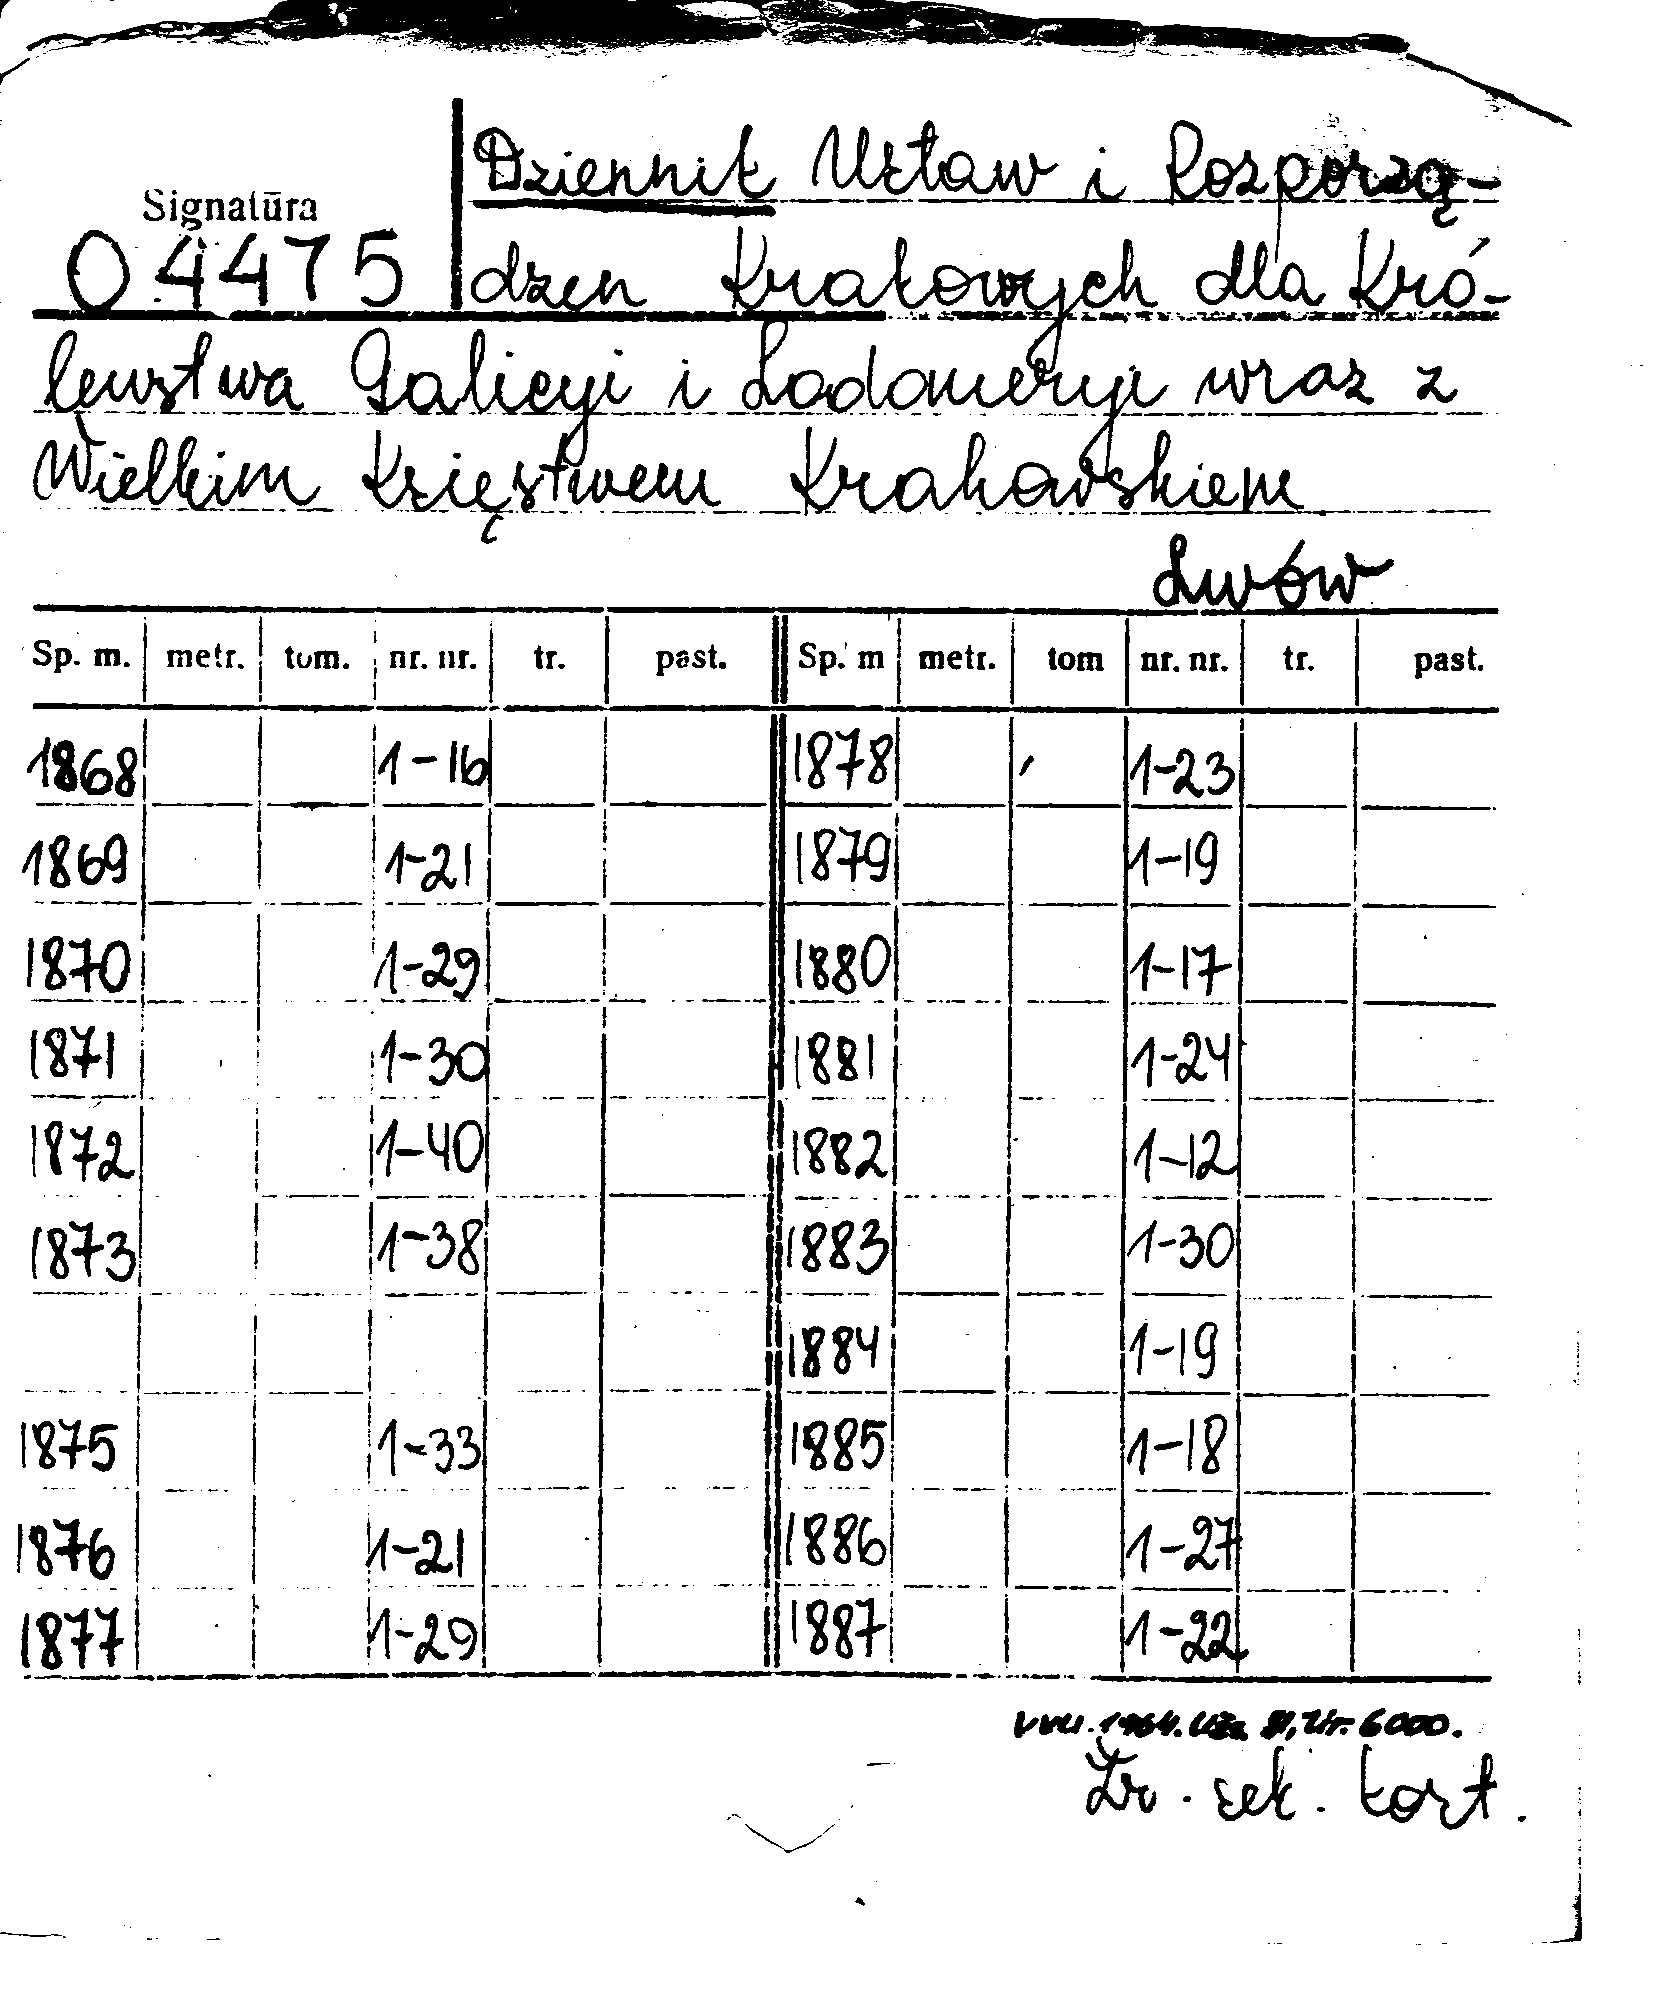 Signatūra
04475
Dziennik Ustaw i Rozporzą-
dzen Krakowych dla Kró-
lewstwa Galicyi i Lodomeryi wraz z
Wielkim Księstwem Krakowskiem
Lwów
Sp. m. metr. tom. nr. nr. tr. past. Sp. m metr. tom nr. nr. tr. past.
1868 1-16 1878 1-23
1869 1-21 1879 1-19
1870 1-29 1880 1-17
1871 1-30 1881 1-24
1872 1-40 1882 1-12
1873 1-38 1883 1-30
1884 1-19
1875 1-33 1885 1-18
1876 1-21 1886 1-27
1877 1-29 1887 1-22
VVU. 1964. Užs. 81, tir. 6000.
Žr. sek. kort.